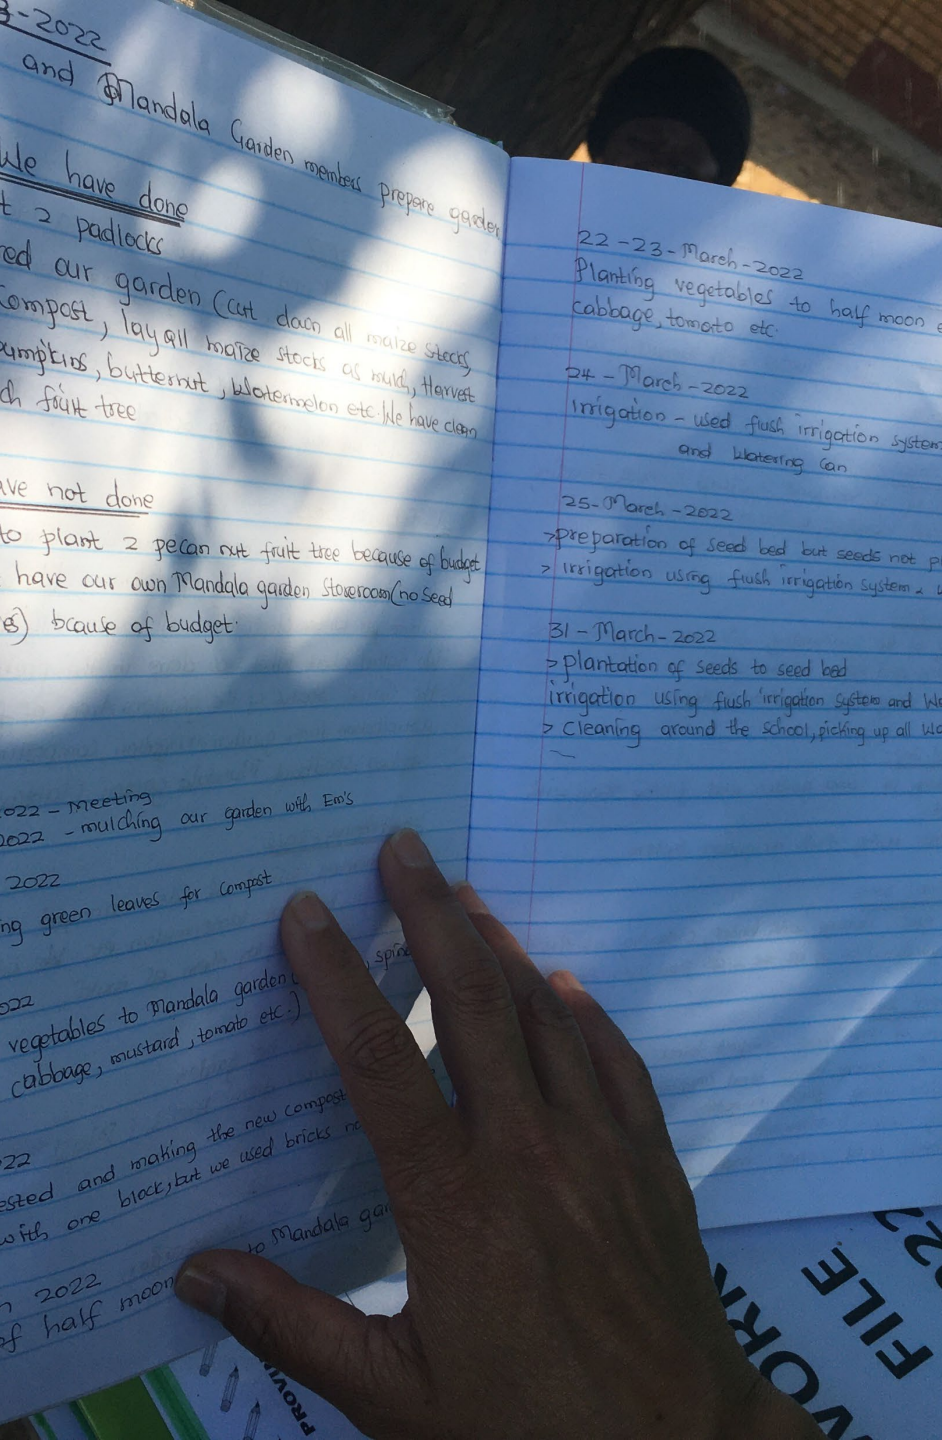 3-2022
and Mandala Garden members prepare garden
We have done
t 2 padlocks
red our garden (cut down all maize stocks,
compost, lay all maize stocks as mulch, Harvest
umpkins, butternut, Watermelon etc. We have clean
ch fruit tree
ave not done
to plant 2 pecan nut fruit tree because of budget
have our own Mandala garden storeroom (no seed
es) bcause of budget.
2022 - Meeting
2022 - mulching our garden with Em's
2022
ng green leaves for compost
022
vegetables to Mandala garden , spin
cabbage, mustard, tomato etc.)
22
ested and making the new compost
with one block, but we used bricks no
h 2022
of half moon to Mandala gar
22-23-March-2022
Planting vegetables to half moon
cabbage, tomato etc.
24-March-2022
irrigation - used flush irrigation system
and watering can
25-March-2022
>preparation of seed bed but seeds not p
> irrigation using flush irrigation system &
31-March-2022
> plantation of seeds to seed bed
irrigation using flush irrigation system and Wa
> Cleaning around the school, picking up all wa
WORK
FILE
PROVI